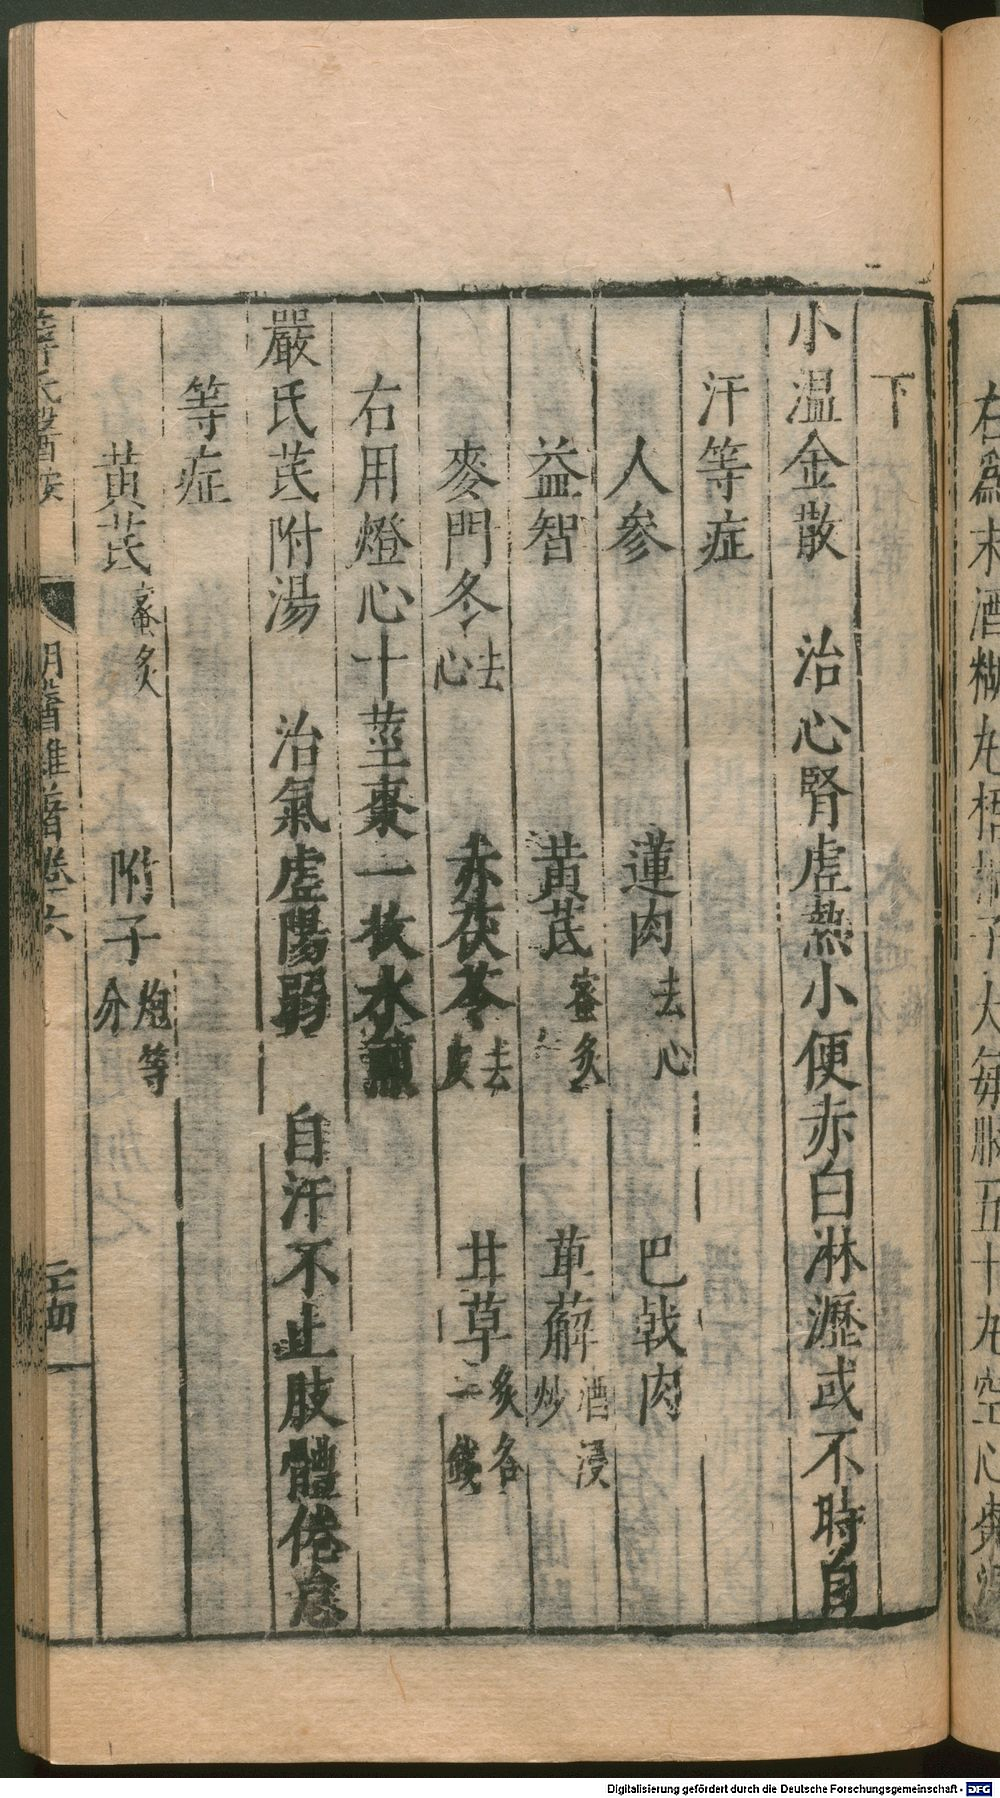 右爲末酒糊丸梧桐子大每服五十丸空心鹽湯
下
小温金散　治心腎虚熱小便赤白淋瀝或不時自
汗等症
人參　蓮肉去心　巴戟肉
益智　黄芪蜜炙　萆薢酒浸炒
麥門冬去心　赤茯苓去皮　甘草炙各二錢
右用燈心十莖棗一枚水煎
嚴氏芪附湯　治氣虚陽弱　自汗不止肢體倦怠
等症
黄芪蜜炙　附子炮等分
薛氏醫案　明醫雜著卷六　二十四
Digitalisierung gefördert durch die Deutsche Forschungsgemeinschaft - DFG